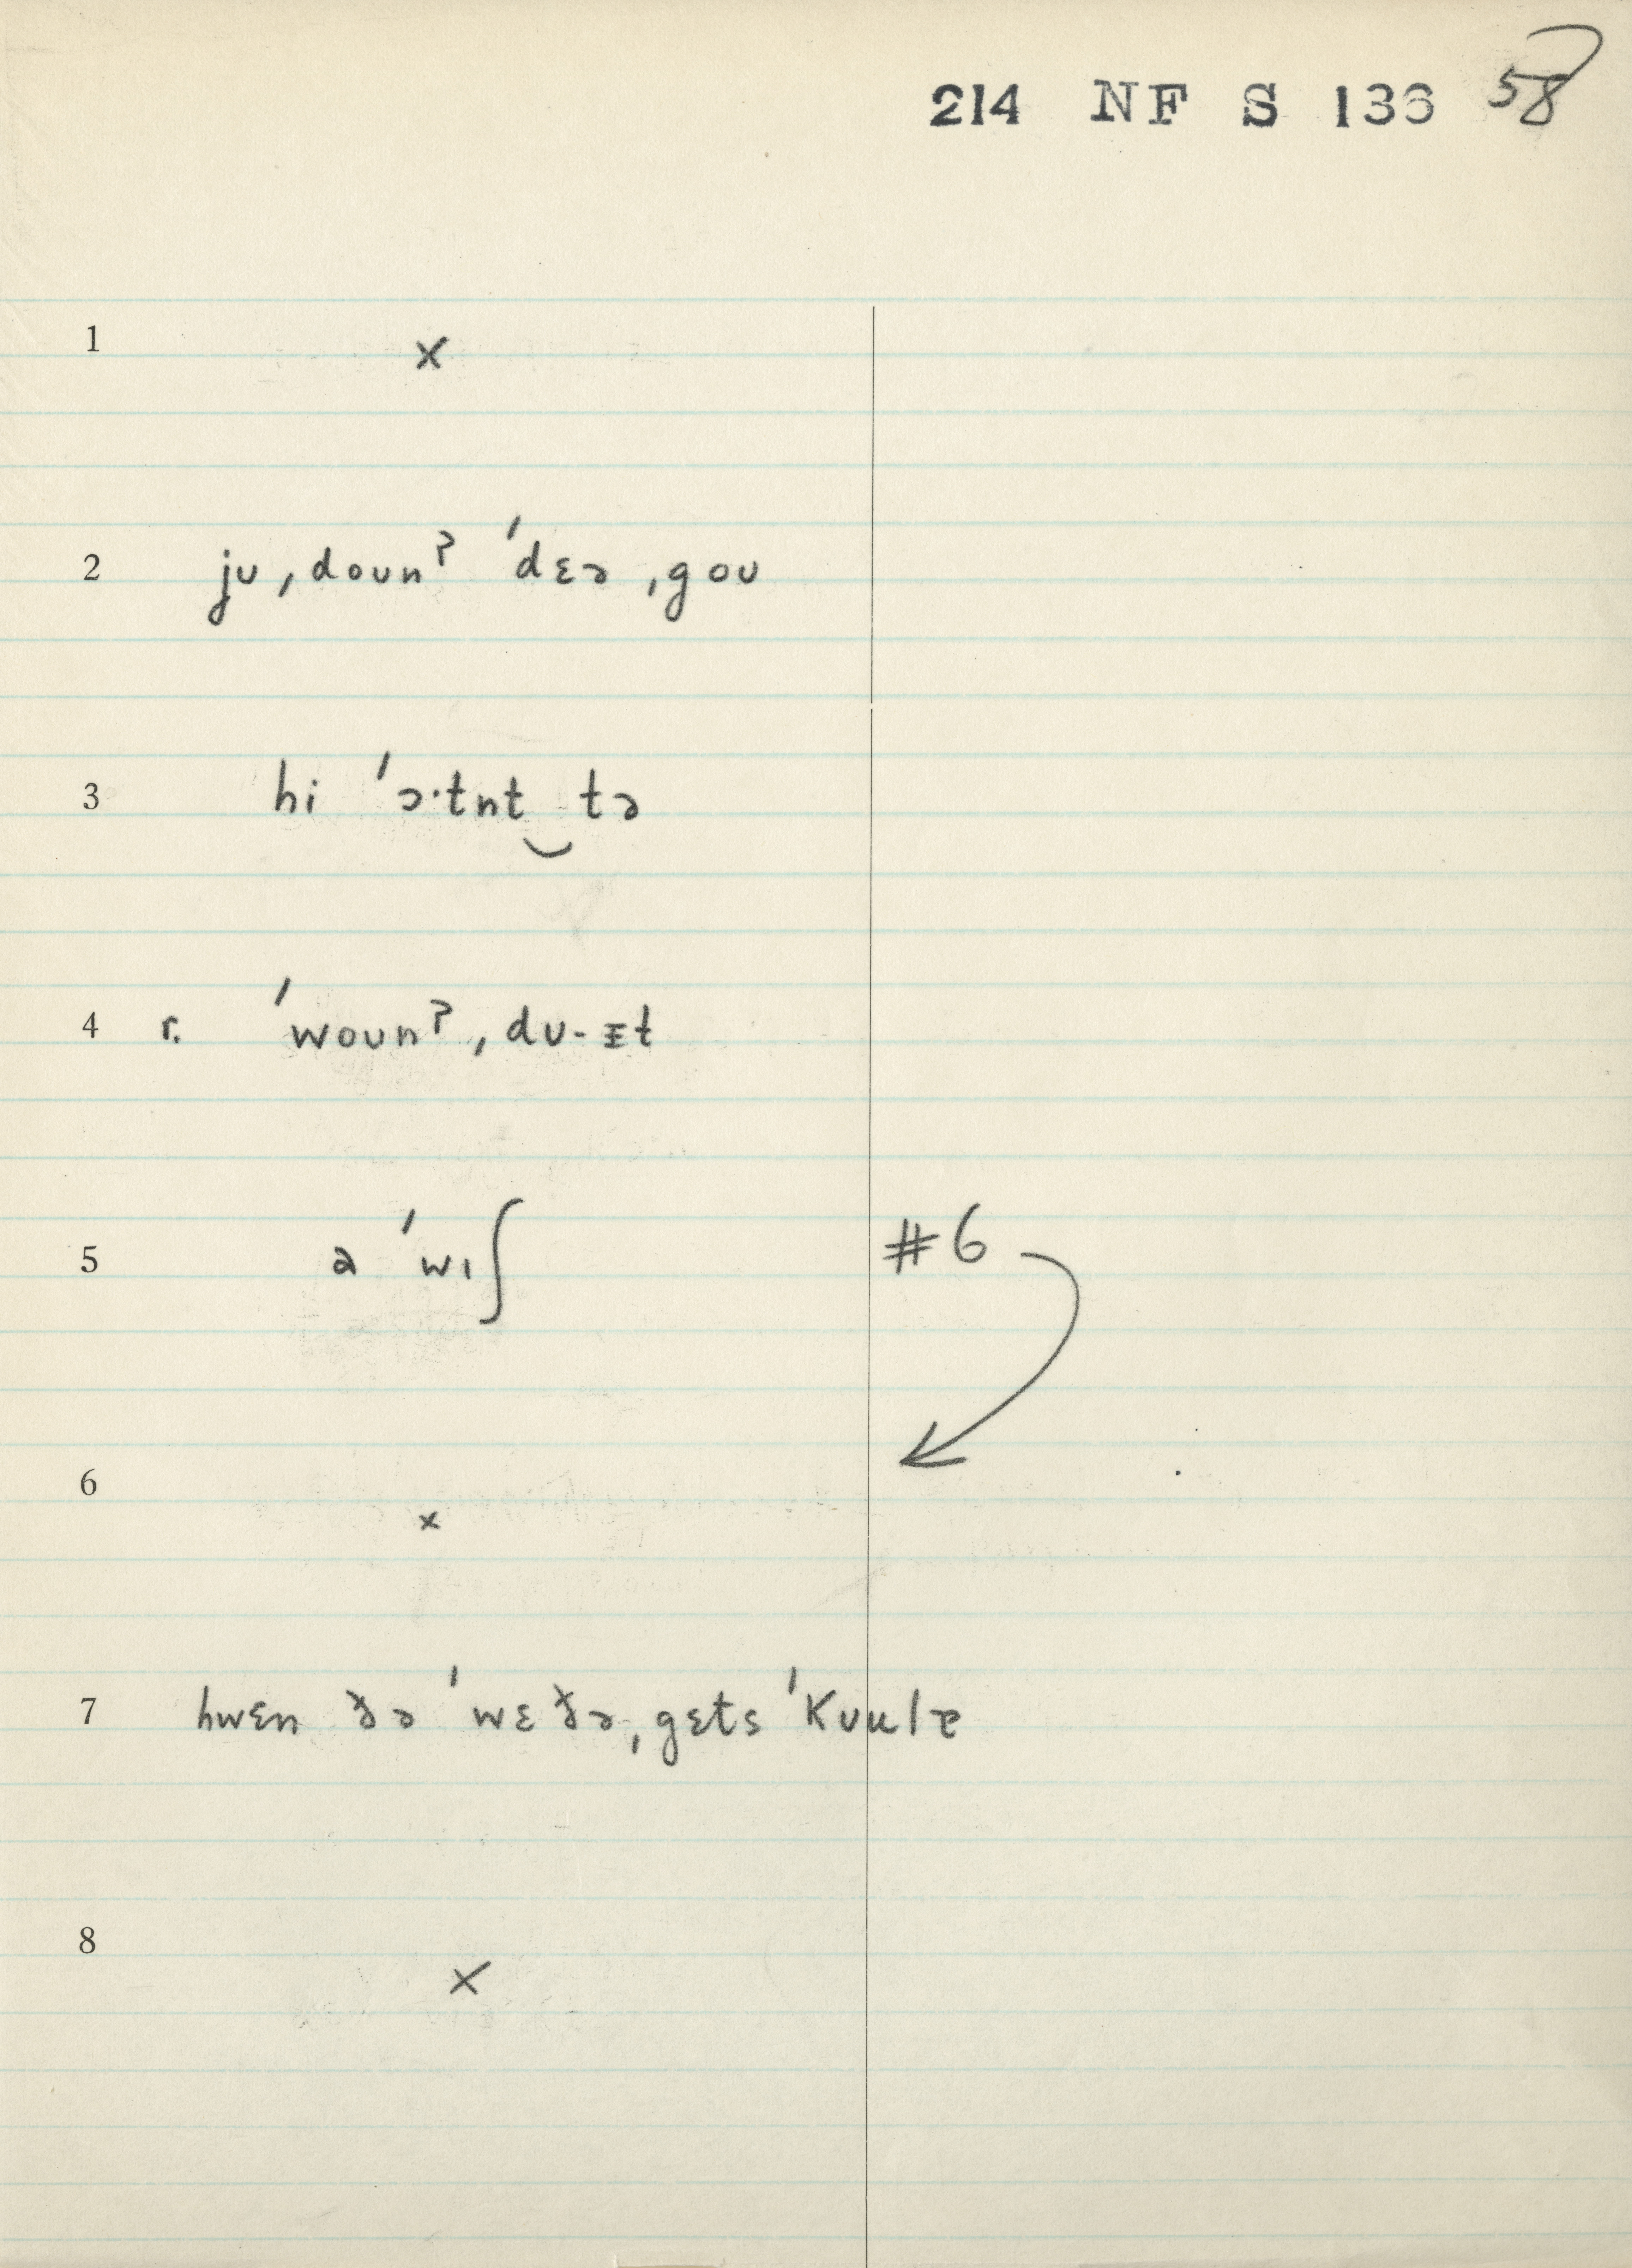 214 NF S 136 58
1 x
2 jʊ ˌdoʊnˀ ˈdɛə ˌgoʊ
3 hi ˈɔ·tnt‿tə
4 r. ˈwoʊnˀ ˌdʊ-ɪt
5 a ˈwɪʃ #6
6 x
7 hwɛn ðə ˈwɛðə ˌgɛts ˈkʊulɚ
8 x